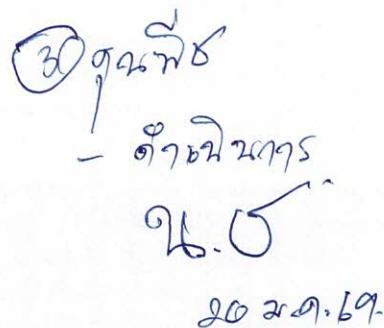 30 คุณพืช
- ดำเนินการ
น.ช
20 ม.ค. 69.